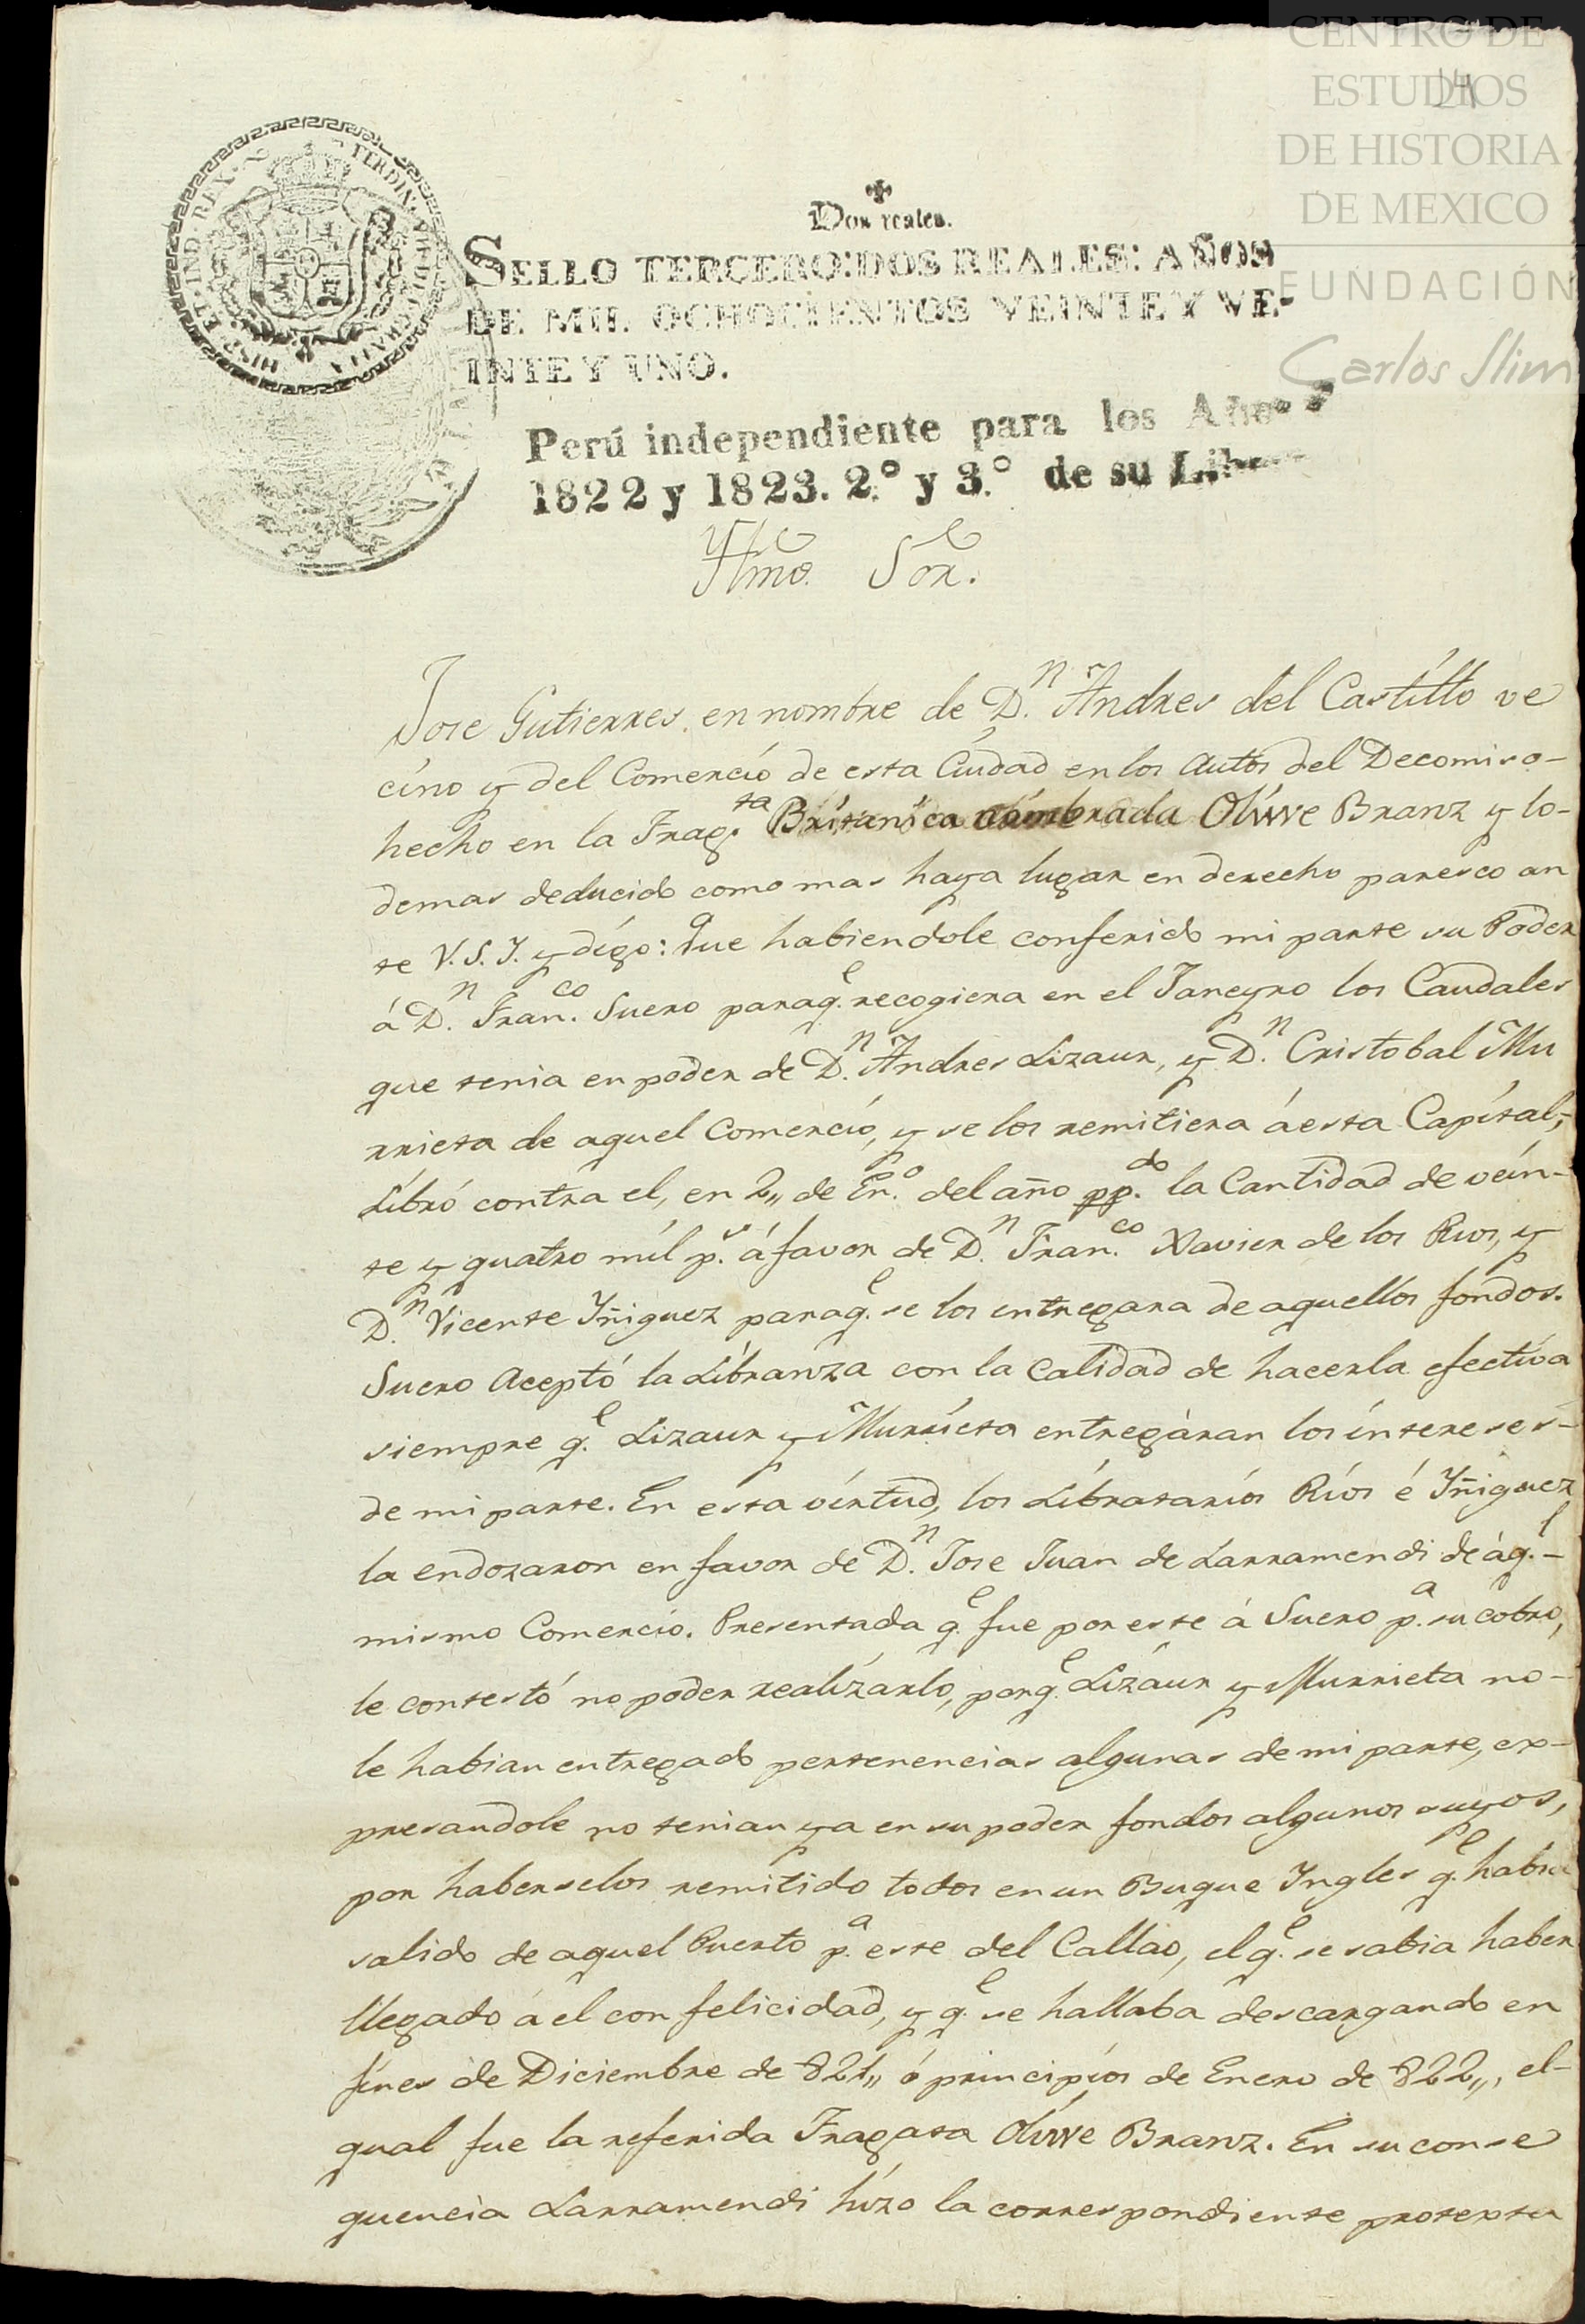 CENTRO DE
ESTUDIOS
DE HISTORIA
DE MEXICO
FUNDACIÓN
Carlos Slim
HISP. ET IND. REX. FERDIN. VII. D. GRATIA
Dos reales.
SELLO TERCERO: DOS REALES: AÑOS
DE MIL OCHOCIENTOS VEINTE Y VE-
INTE Y UNO.
Perú independiente para los Años
1822 y 1823. 2.º y 3.º de su
Yllmo. Sor.
Jose Gutierres, en nombre de D.n Andres del Castillo ve
cino y del Comercio de esta Ciudad en los Autos del Decomiso-
hecho en la Frag.ta Britanica nombrada Oliwe Branz y lo-
demas deducido como mas haya lugar en derecho paresco an
te V.S.Y. y digo: Que habiendole conferido mi parte su Poder
á D.n Fran.co Suero paraq.e recogiera en el Janeyro los Caudales
que tenia en poder de D.n Andres Lizaur, y D.n Cristobal Mu
rrieta de aquel Comercio, y se los remitiera á esta Capital,-
Libró contra el, en 2,, de En.o del año pp.do la Cantidad de vein-
te y quatro mil p.s á favor de D.n Fran.co Xavier de los Rios, y
D.n Vicente Yñiguez paraq.e se los entregara de aquellos fondos.
Suero Aceptó la Libranza con la Calidad de hacerla efectiva
siempre q.e Lizaur y Murrieta entregàran los intereses-
de mi parte. En esta virtud, los Libratarios Ríos é Yñiguez
la endozaron en favor de D.n Jose Juan de Larramendi de àq.l-
mismo Comercio. Presentada q.e fue por este á Suero p.a su cobro,
le contestó no poder realizarlo, porq.e Lizaur y Murrieta no-
le habian entregado pertenencias algunas de mi parte, ex-
presandole no tenian ya en su poder fondos algunos suyos,
por haberselos remitido todos en un Buque Yngles q.e habia
salido de aquel Puerto p.a este del Callao, el q.e se sabia haber
llegado á el con felicidad, y q.e se hallaba descargando en
fines de Diciembre de 821,, ó principios de Enero de 822,,, el-
qual fue la referida Fragata Oliwe Branz. En su conse
quencia Larramendi hizo la correspondiente protexta